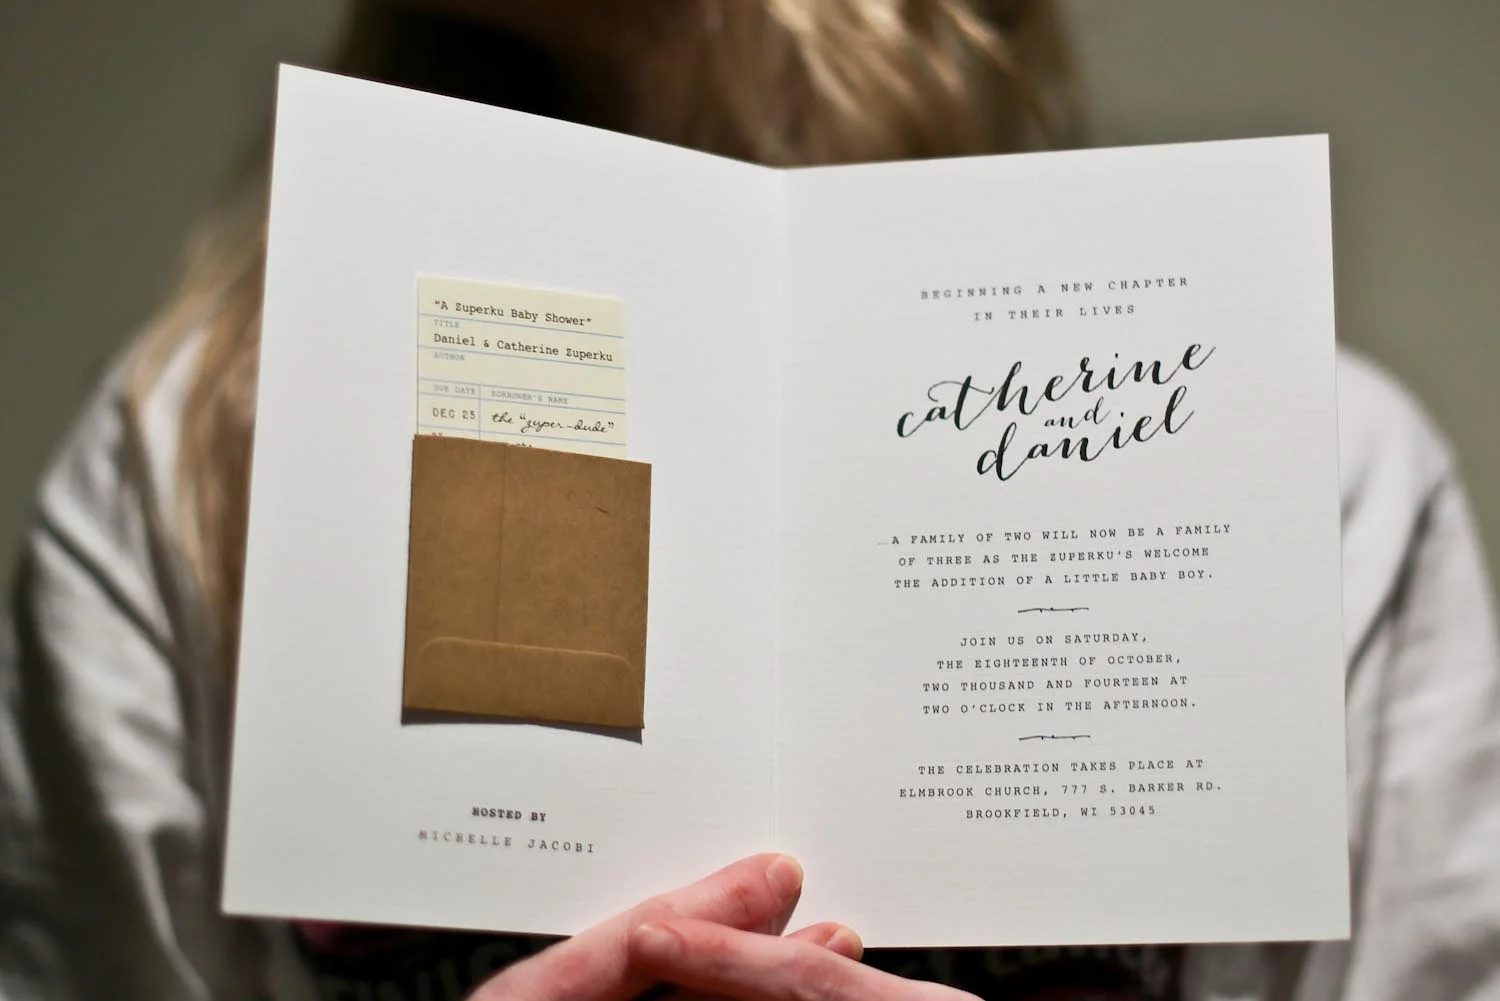 "A Zuperku Baby Shower"
TITLE
Daniel & Catherine Zuperku
AUTHOR
DUE DATE BORROWER'S NAME
DEC 25 the "zuper-dude"
HOSTED BY
MICHELLE JACOBI
BEGINNING A NEW CHAPTER
IN THEIR LIVES
catherine
and
daniel
...A FAMILY OF TWO WILL NOW BE A FAMILY
OF THREE AS THE ZUPERKU'S WELCOME
THE ADDITION OF A LITTLE BABY BOY.
JOIN US ON SATURDAY,
THE EIGHTEENTH OF OCTOBER,
TWO THOUSAND AND FOURTEEN AT
TWO O'CLOCK IN THE AFTERNOON.
THE CELEBRATION TAKES PLACE AT
ELMBROOK CHURCH, 777 S. BARKER RD.
BROOKFIELD, WI 53045